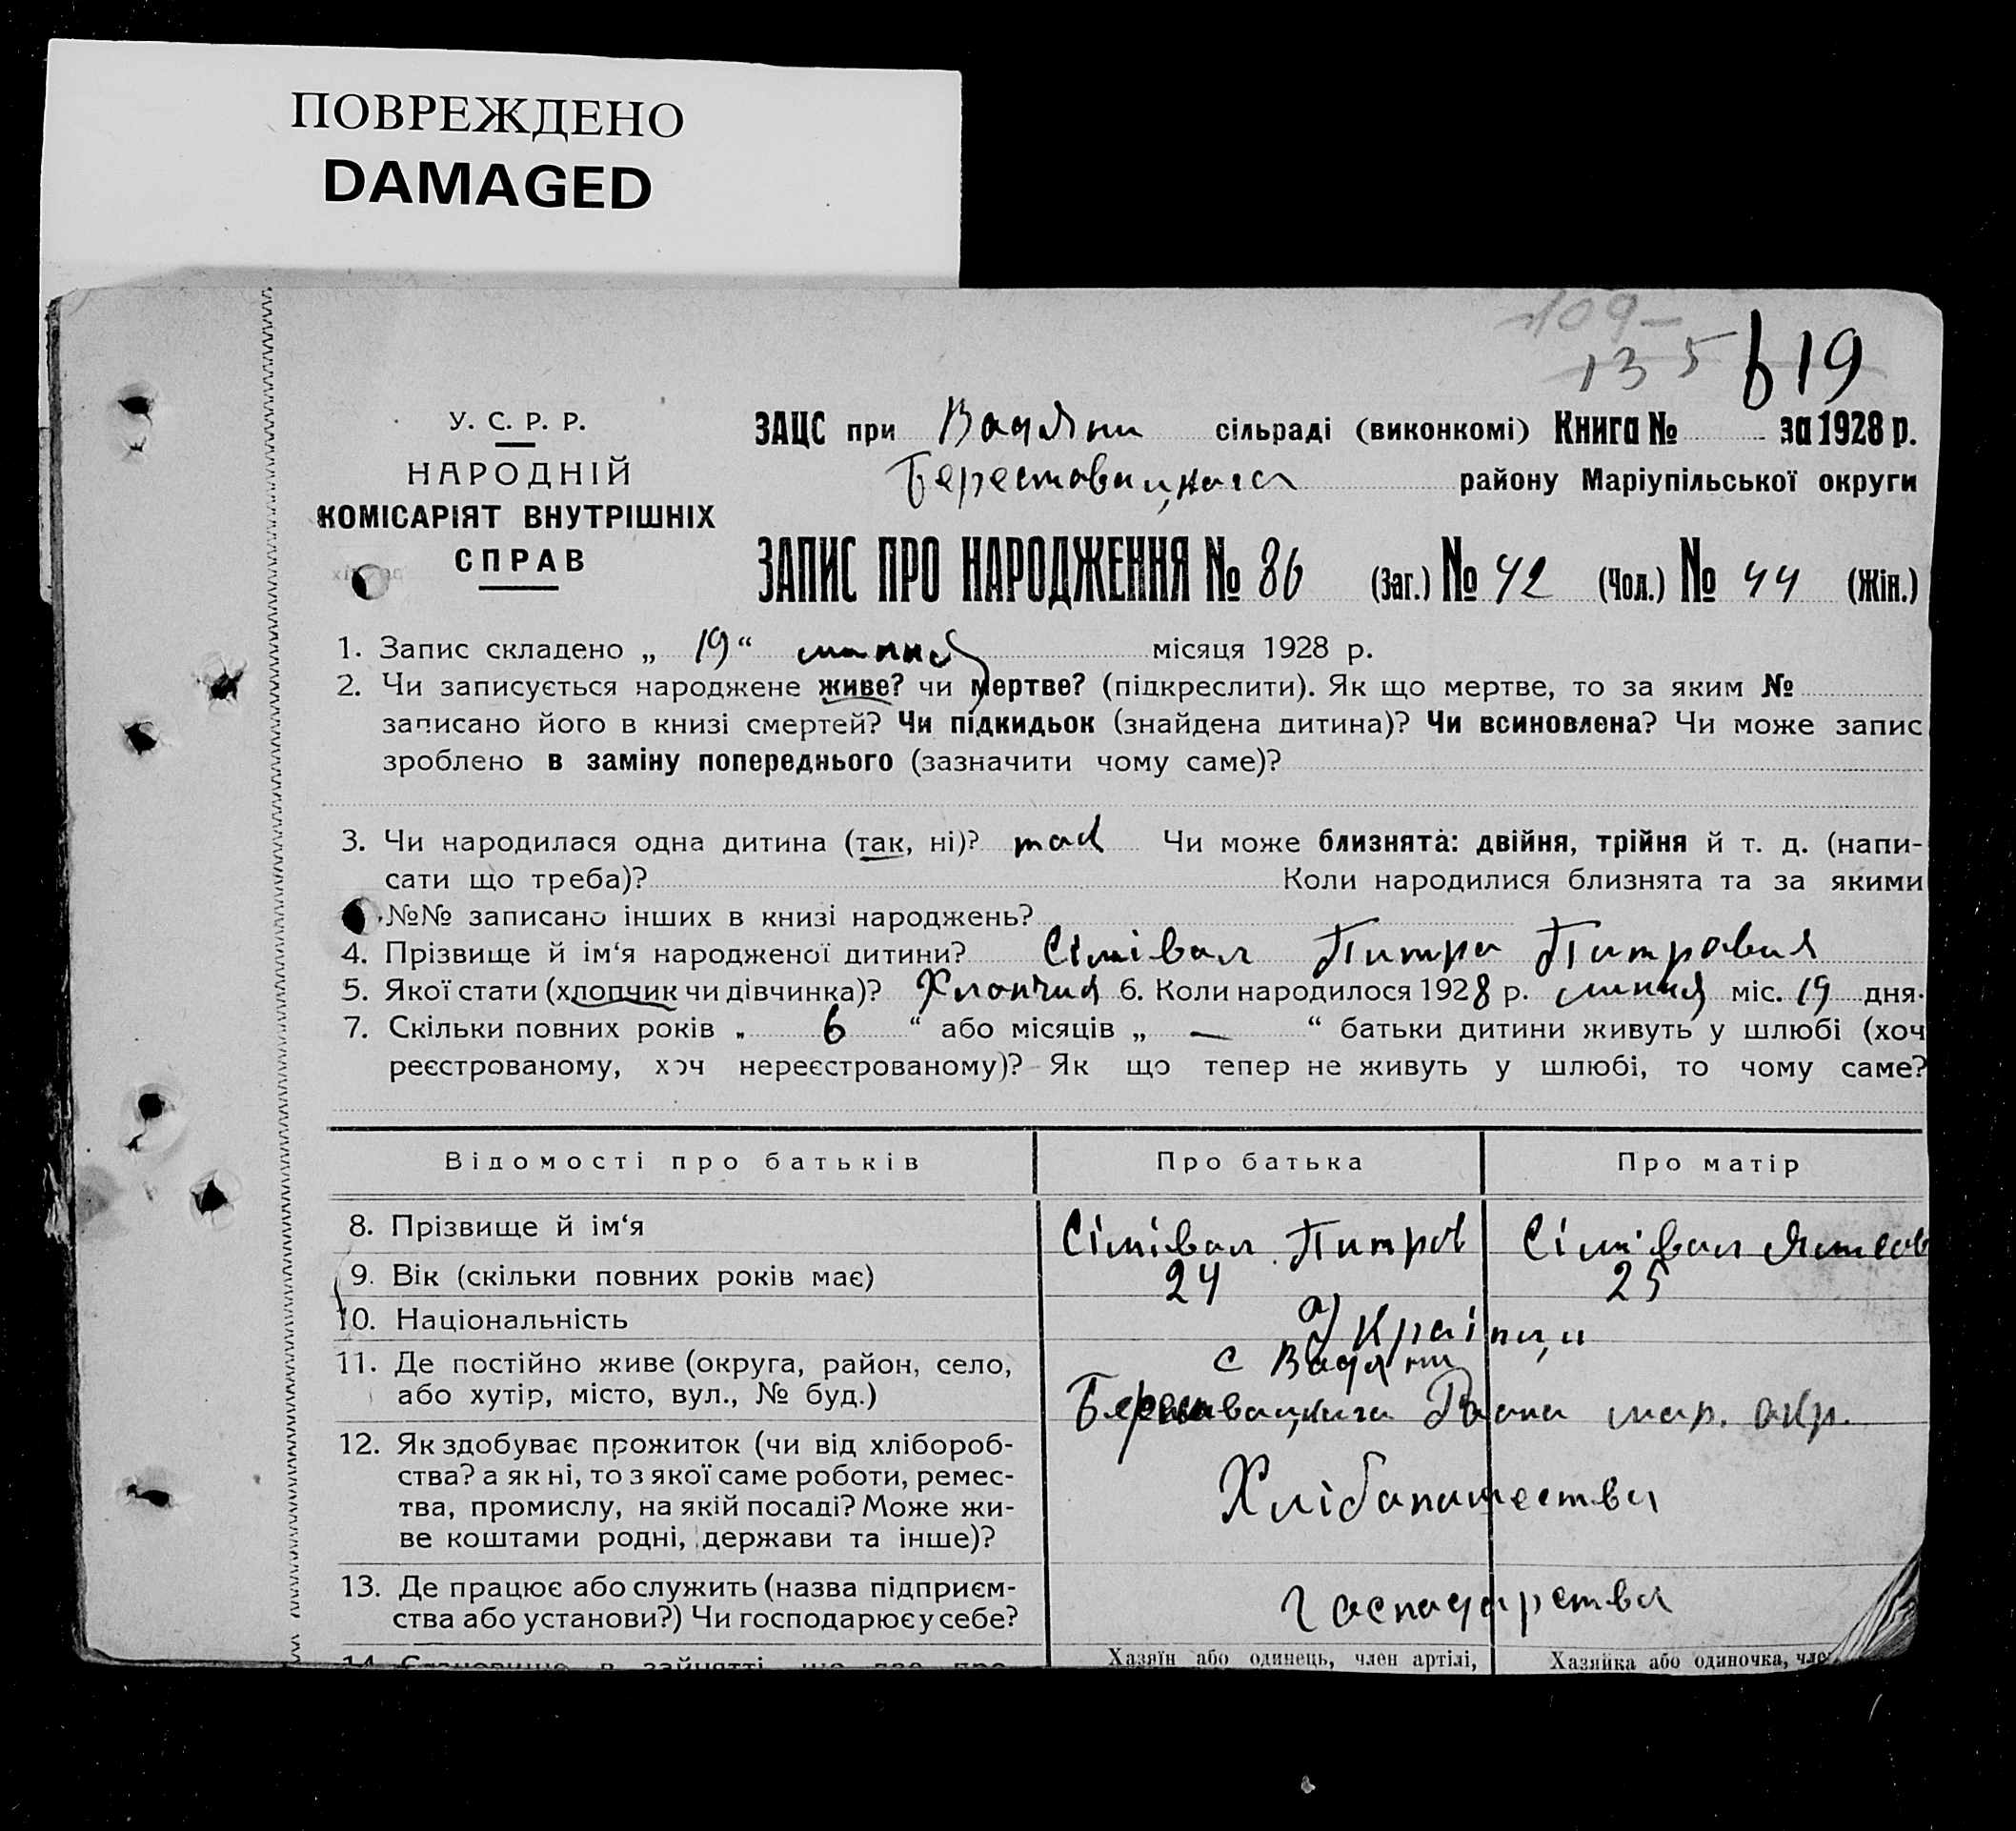 ПОВРЕЖДЕНО
DAMAGED
109-
135 619
У. С. Р. Р.
НАРОДНІЙ
КОМІСАРІЯТ ВНУТРІШНІХ
СПРАВ
ЗАЦС при Вадяни сільраді (виконкомі) Книга № за 1928 р.
Берестовицкага району Маріупільської округи
ЗАПИС ПРО НАРОДЖЕННЯ № 86 (Заг.) № 42 (Чол.) № 44 (Жін.)
1. Запис складено „ 19 “ місяця 1928 р.
2. Чи записується народжене живе? чи мертве? (підкреслити). Як що мертве, то за яким №
записано його в книзі смертей? Чи підкидьок (знайдена дитина)? Чи всиновлена? Чи може запис
зроблено в заміну попереднього (зазначити чому саме)?
3. Чи народилася одна дитина (так, ні)? так Чи може близнята: двійня, трійня й т. д. (напи-
сати що треба)? Коли народилися близнята та за якими
№№ записано інших в книзі народжень?
4. Прізвище й ім‘я народженої дитини? Сімівал Питро Питровия
5. Якої стати (хлопчик чи дівчинка)? 6. Коли народилося 1928 р. липня міс. 19 дня.
7. Скільки повних років „ 6 “ або місяців „ — “ батьки дитини живуть у шлюбі (хоч
реєстрованому, хоч нереєстрованому)? Як що тепер не живуть у шлюбі, то чому саме?
Відомості про батьків Про батька Про матір
8. Прізвище й ім‘я Сімівал Питров Сімівал
9. Вік (скільки повних років має) 24 25
10. Національність Українци
11. Де постійно живе (округа, район, село, с Вадяни
або хутір, місто, вул., № буд.) Раона мар. окр.
12. Як здобуває прожиток (чи від хлібороб-
ства? а як ні, то з якої саме роботи, ремес-
тва, промислу, на якій посаді? Може жи- Хлібапашество
ве коштами родні, держави та інше)?
13. Де працює або служить (назва підприєм-
ства або установи?) Чи господарює у себе? Гаспадарство
14. Становище в занятті, що про
Хазяїн або одинець, член артілі, Хазяйка або одиночка,